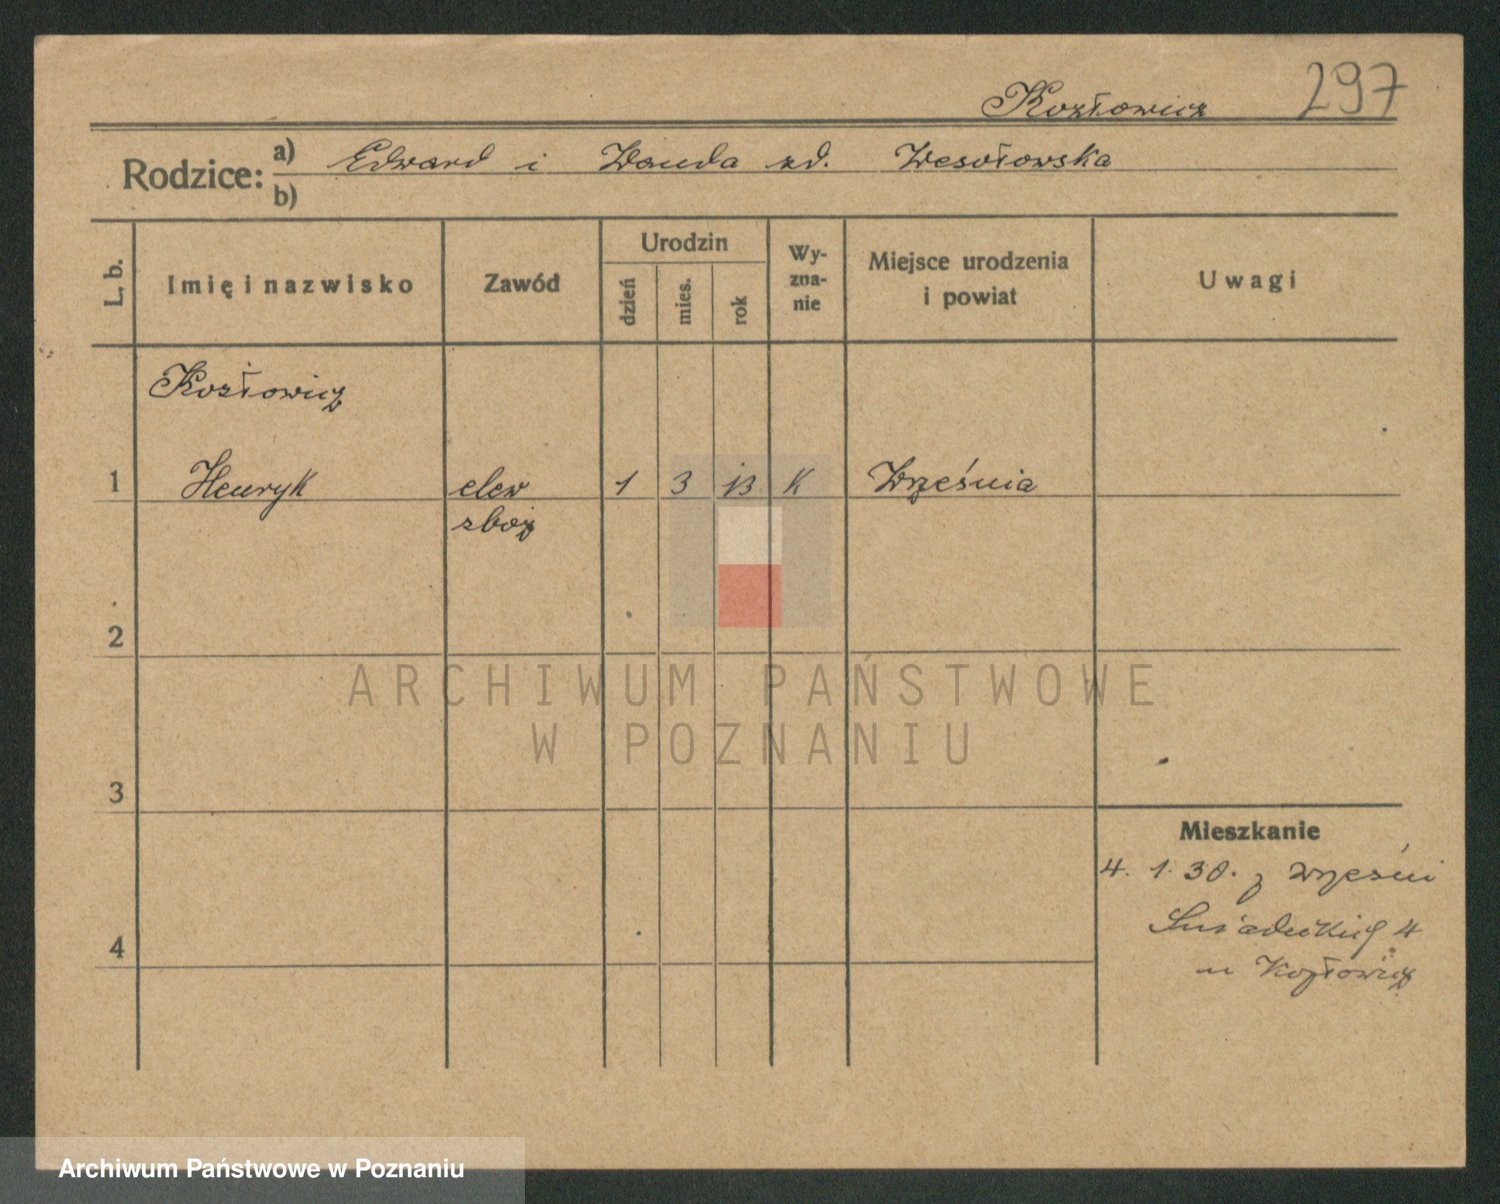 Kozłowicz 297
Rodzice: a) Edward i Wanda zd. Wesołowska
b)
L. b. Imię i nazwisko Zawód Urodzin dzień mies. rok Wy-zna-nie Miejsce urodzenia i powiat Uwagi
Kozłowicz
1 Henryk elew 1 3 13 K Września
zboż
2
ARCHIWUM PAŃSTWOWE
W POZNANIU
3
Mieszkanie
4. 1. 30. z Wrześni
Śniadeckich 4
4
m Kozłowicz
Archiwum Państwowe w Poznaniu